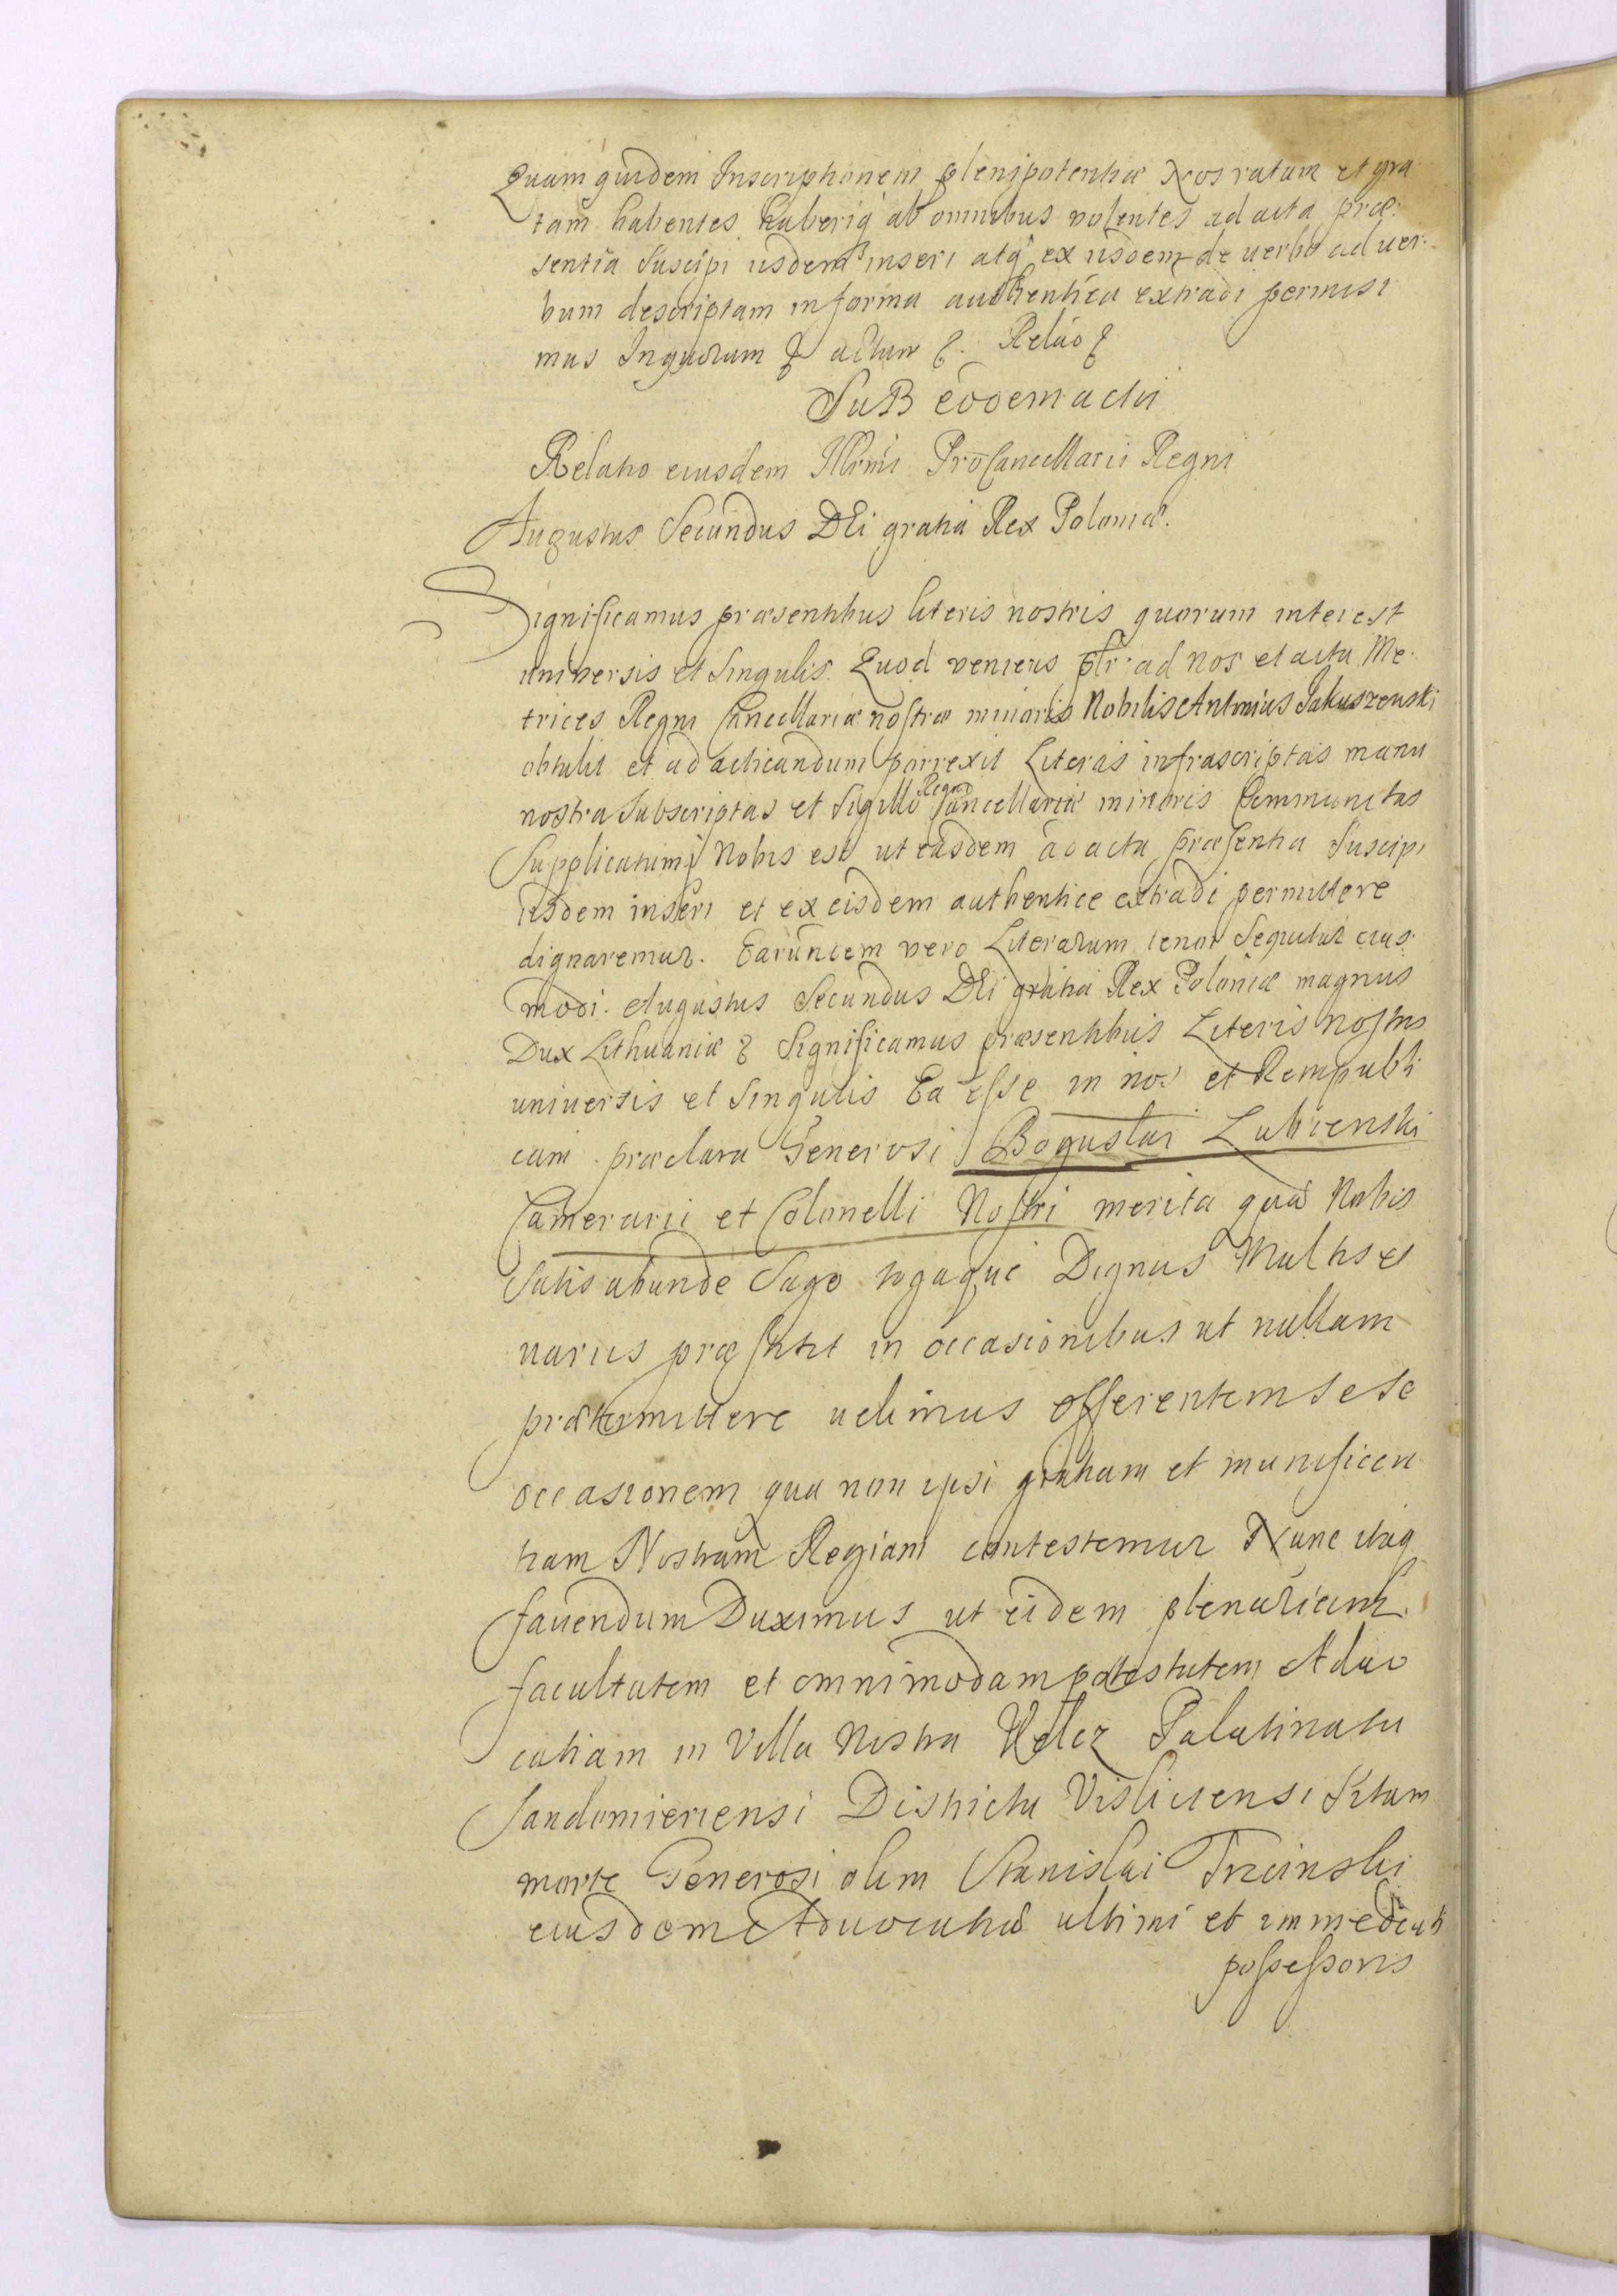 Quam quidem Inscriptionem plenipotentiæ Nos ratam et gra
tam habentes haberiq ab omnibus volentes ad acta præ
sentia suscipi iisdem inseri atq ex iisdem de verbo ad ver
bum descriptam in forma authentica extradi permisi
mus In quorum & actum &. Relao &
Sub eodem actu
Relatio eiusdem Illrmi ProCancellarii Regni
Augustus Secundus DEi gratia Rex Poloniæ.
Significamus præsentibus literis nostris quorum interest
universis et singulis. Quod veniens plr ad nos et acta Me
trices Regni Cancellariæ nostræ minoris Nobilis Antonius Jakuszenski
obtulit et ad acticandum porrexit Literas infrascriptas manu
nostra subscriptas et sigillo Regni Cancellariæ minoris Communitas
Supplicatumq Nobis est ut easdem ad acta præsentia Suscipi
iisdem inseri et ex eisdem authentice extradi permittere
dignaremur. Earundem vero Literarum tenor sequitur eius
modi. Augustus Secundus DEi gratia Rex Poloniæ magnus
Dux Lithuaniæ & Significamus præsentibus Literis nostris
universis et singulis Ea esse in nos et Rempubli
cam præclara Generosi Boguslai Lubienski
Camerarii et Colonelli Nostri merita quæ Nobis
satis abunde Sago togaque Dignus Multis et
variis præstitit in occasionibus ut nullam
prætermittere velimus offerentem sese
occasionem qua non ipsi gratiam et munificen
tiam Nostram Regiam contestemur Nunc itaq
favendum Duximus ut eidem plenariam
facultatem et omnimodam potestatem Advo
catiam in Villa Nostra Palatinatu
Sandomieriensi Districtu Visliciensi sitam
morte Generosi olim Stanislai Trzcinski
eiusdem Advocatiæ ultimi et immediati
possessoris